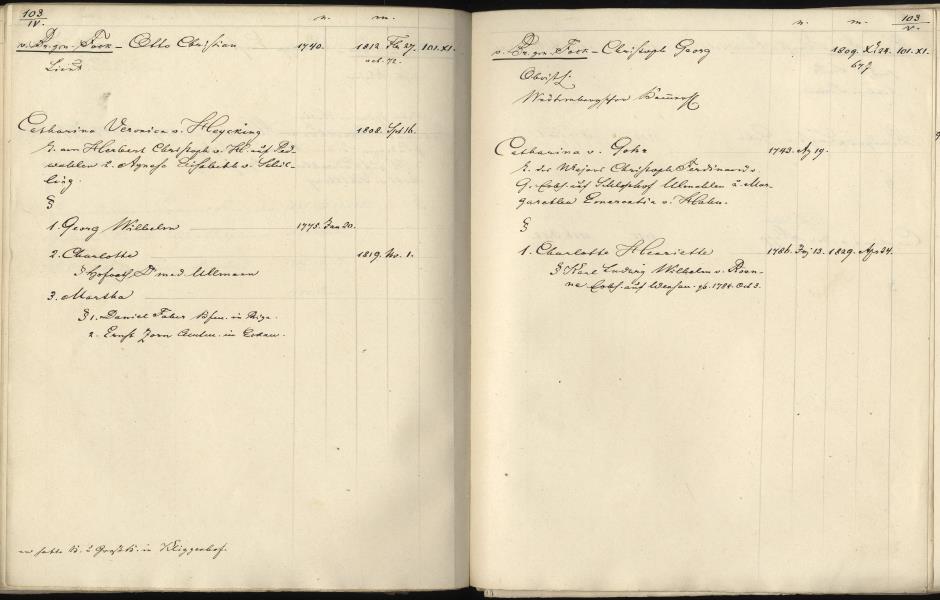 103
IV.
n. m.
v. Br. gen. Fock – Otto Christian 1740. 1812 Fb 27. 101. XI.
Lieut aet. 72.
Catharina Veronica v. Heycking 1808. Spt 16.
T. von Herbert Christoph v. H. auf
Agnesa Elisabeth v. Schil-
ling.
§
1. Georg Wilhelm 1775. Jan 20.
2. Charlotte 1819. No. 1.
§ Hofrath Dr med Ullmann
3. Martha
§ 1. Daniel Faber in Riga.
2. Ernst Zorn in
in
103
V.
n. m.
v. Br. gen. Fock – Christoph Georg 1809. 24. 101. XI.
67 J.
Obristl.
Catharina v. Gohr 1743. Ag 19.
T. des Majors Christoph Ferdinand v.
G. Erbh auf Schloshof Ulmahlen u. Mar-
garetha Emerentia v. Hahn.
§
1. Charlotte Henriette 1786. 13. 1829. Apr 24.
§ Karl Ludwig Wilhelm v. Renn-
ne Erbh. auf gb. 1784. Oct 3.